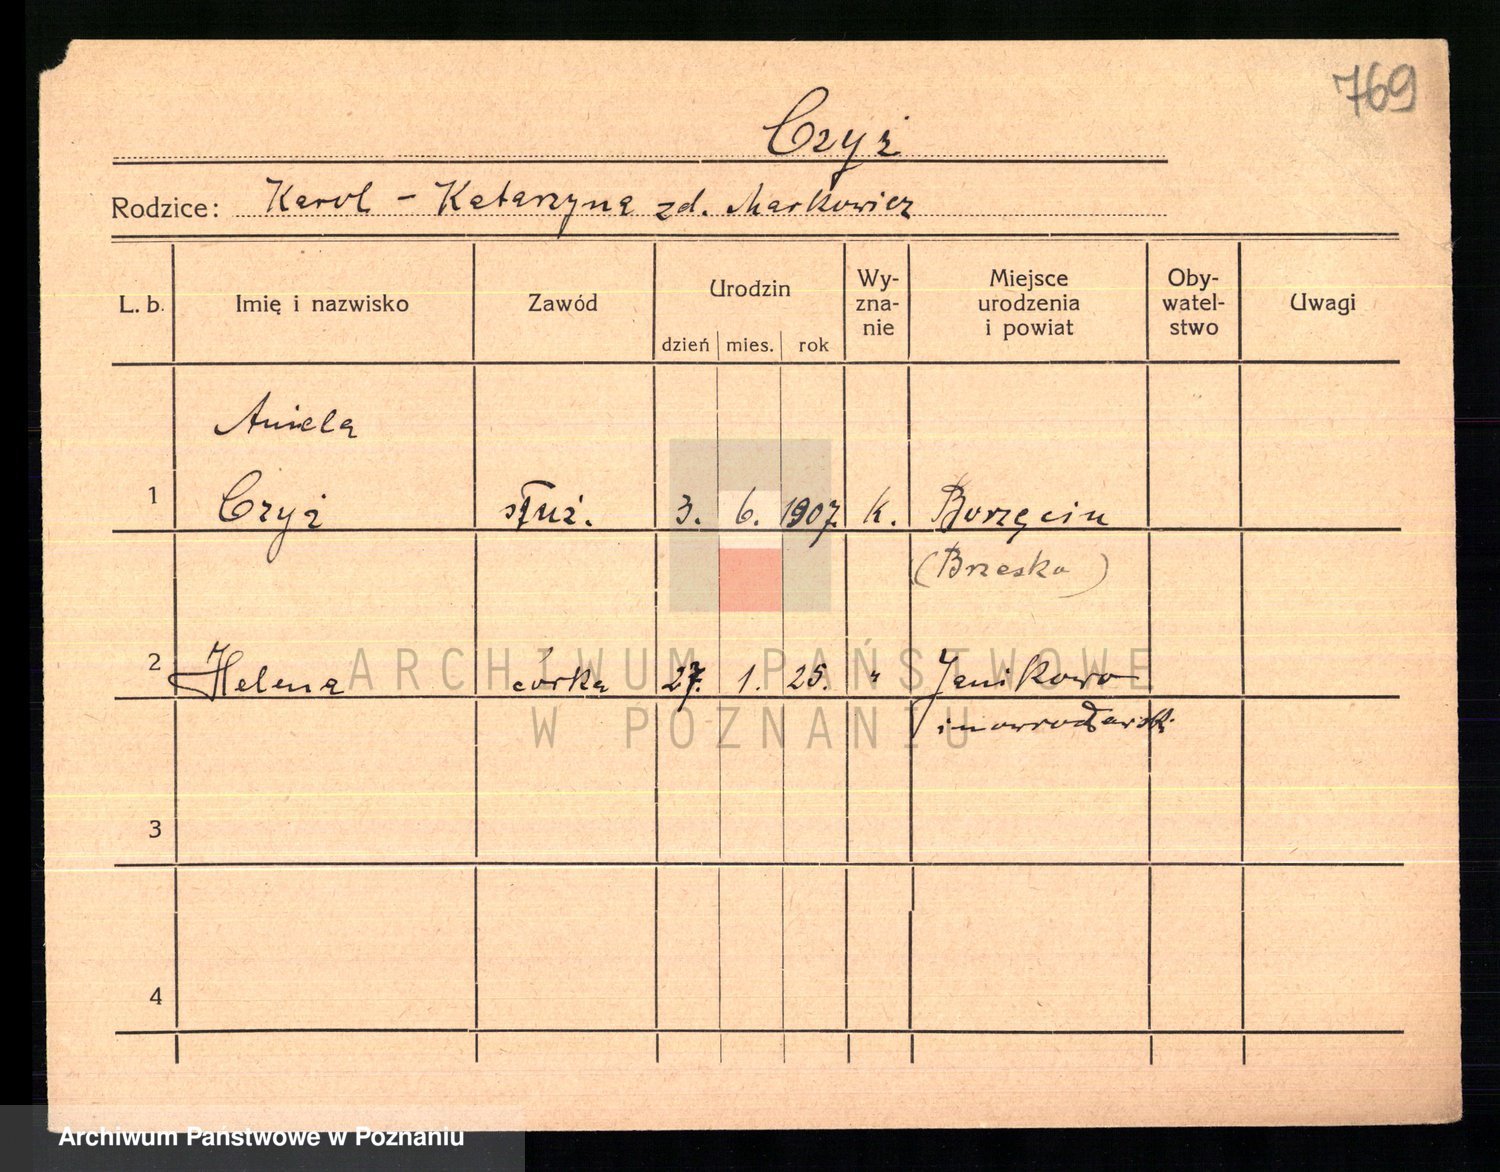 769
Czyż
Rodzice: Karol - Katarzyna zd. Markowicz
L. b. Imię i nazwisko Zawód Urodzin Wy-zna-nie Miejsce urodzenia i powiat Oby-watel-stwo Uwagi
dzień mies. rok
Aniela
1 Czyż służ. 3. 6. 1907. k. Borzęcin
(Brzesko)
2 Helena córka 27. 1. 25. " Janikowo
inowrocławsk.
3
4
ARCHIWUM PAŃSTWOWE
W POZNANIU
Archiwum Państwowe w Poznaniu